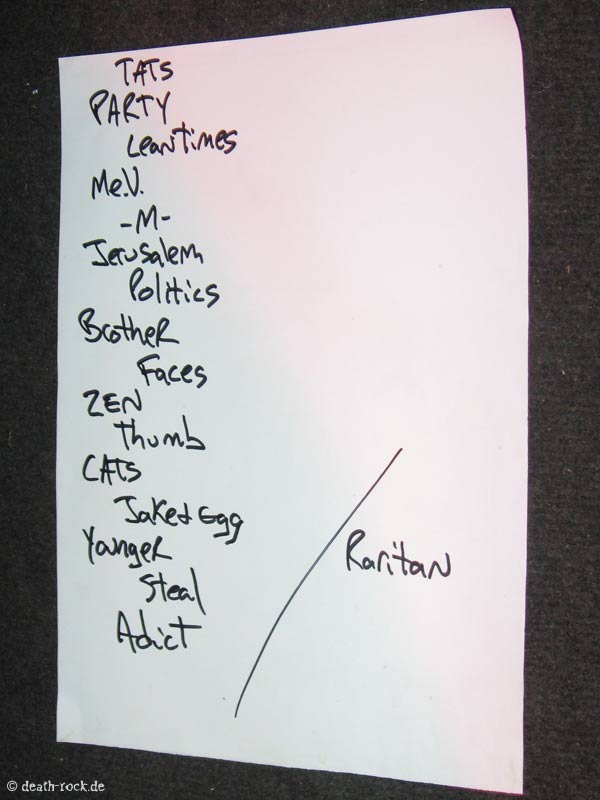 TATS
PARTY
Leantimes
Me.V.
-M-
Jerusalem
Politics
Brother
Faces
ZEN
Thumb
CATS
Jaked Egg
Younger
Steal
Adict
Raritan
© death-rock.de